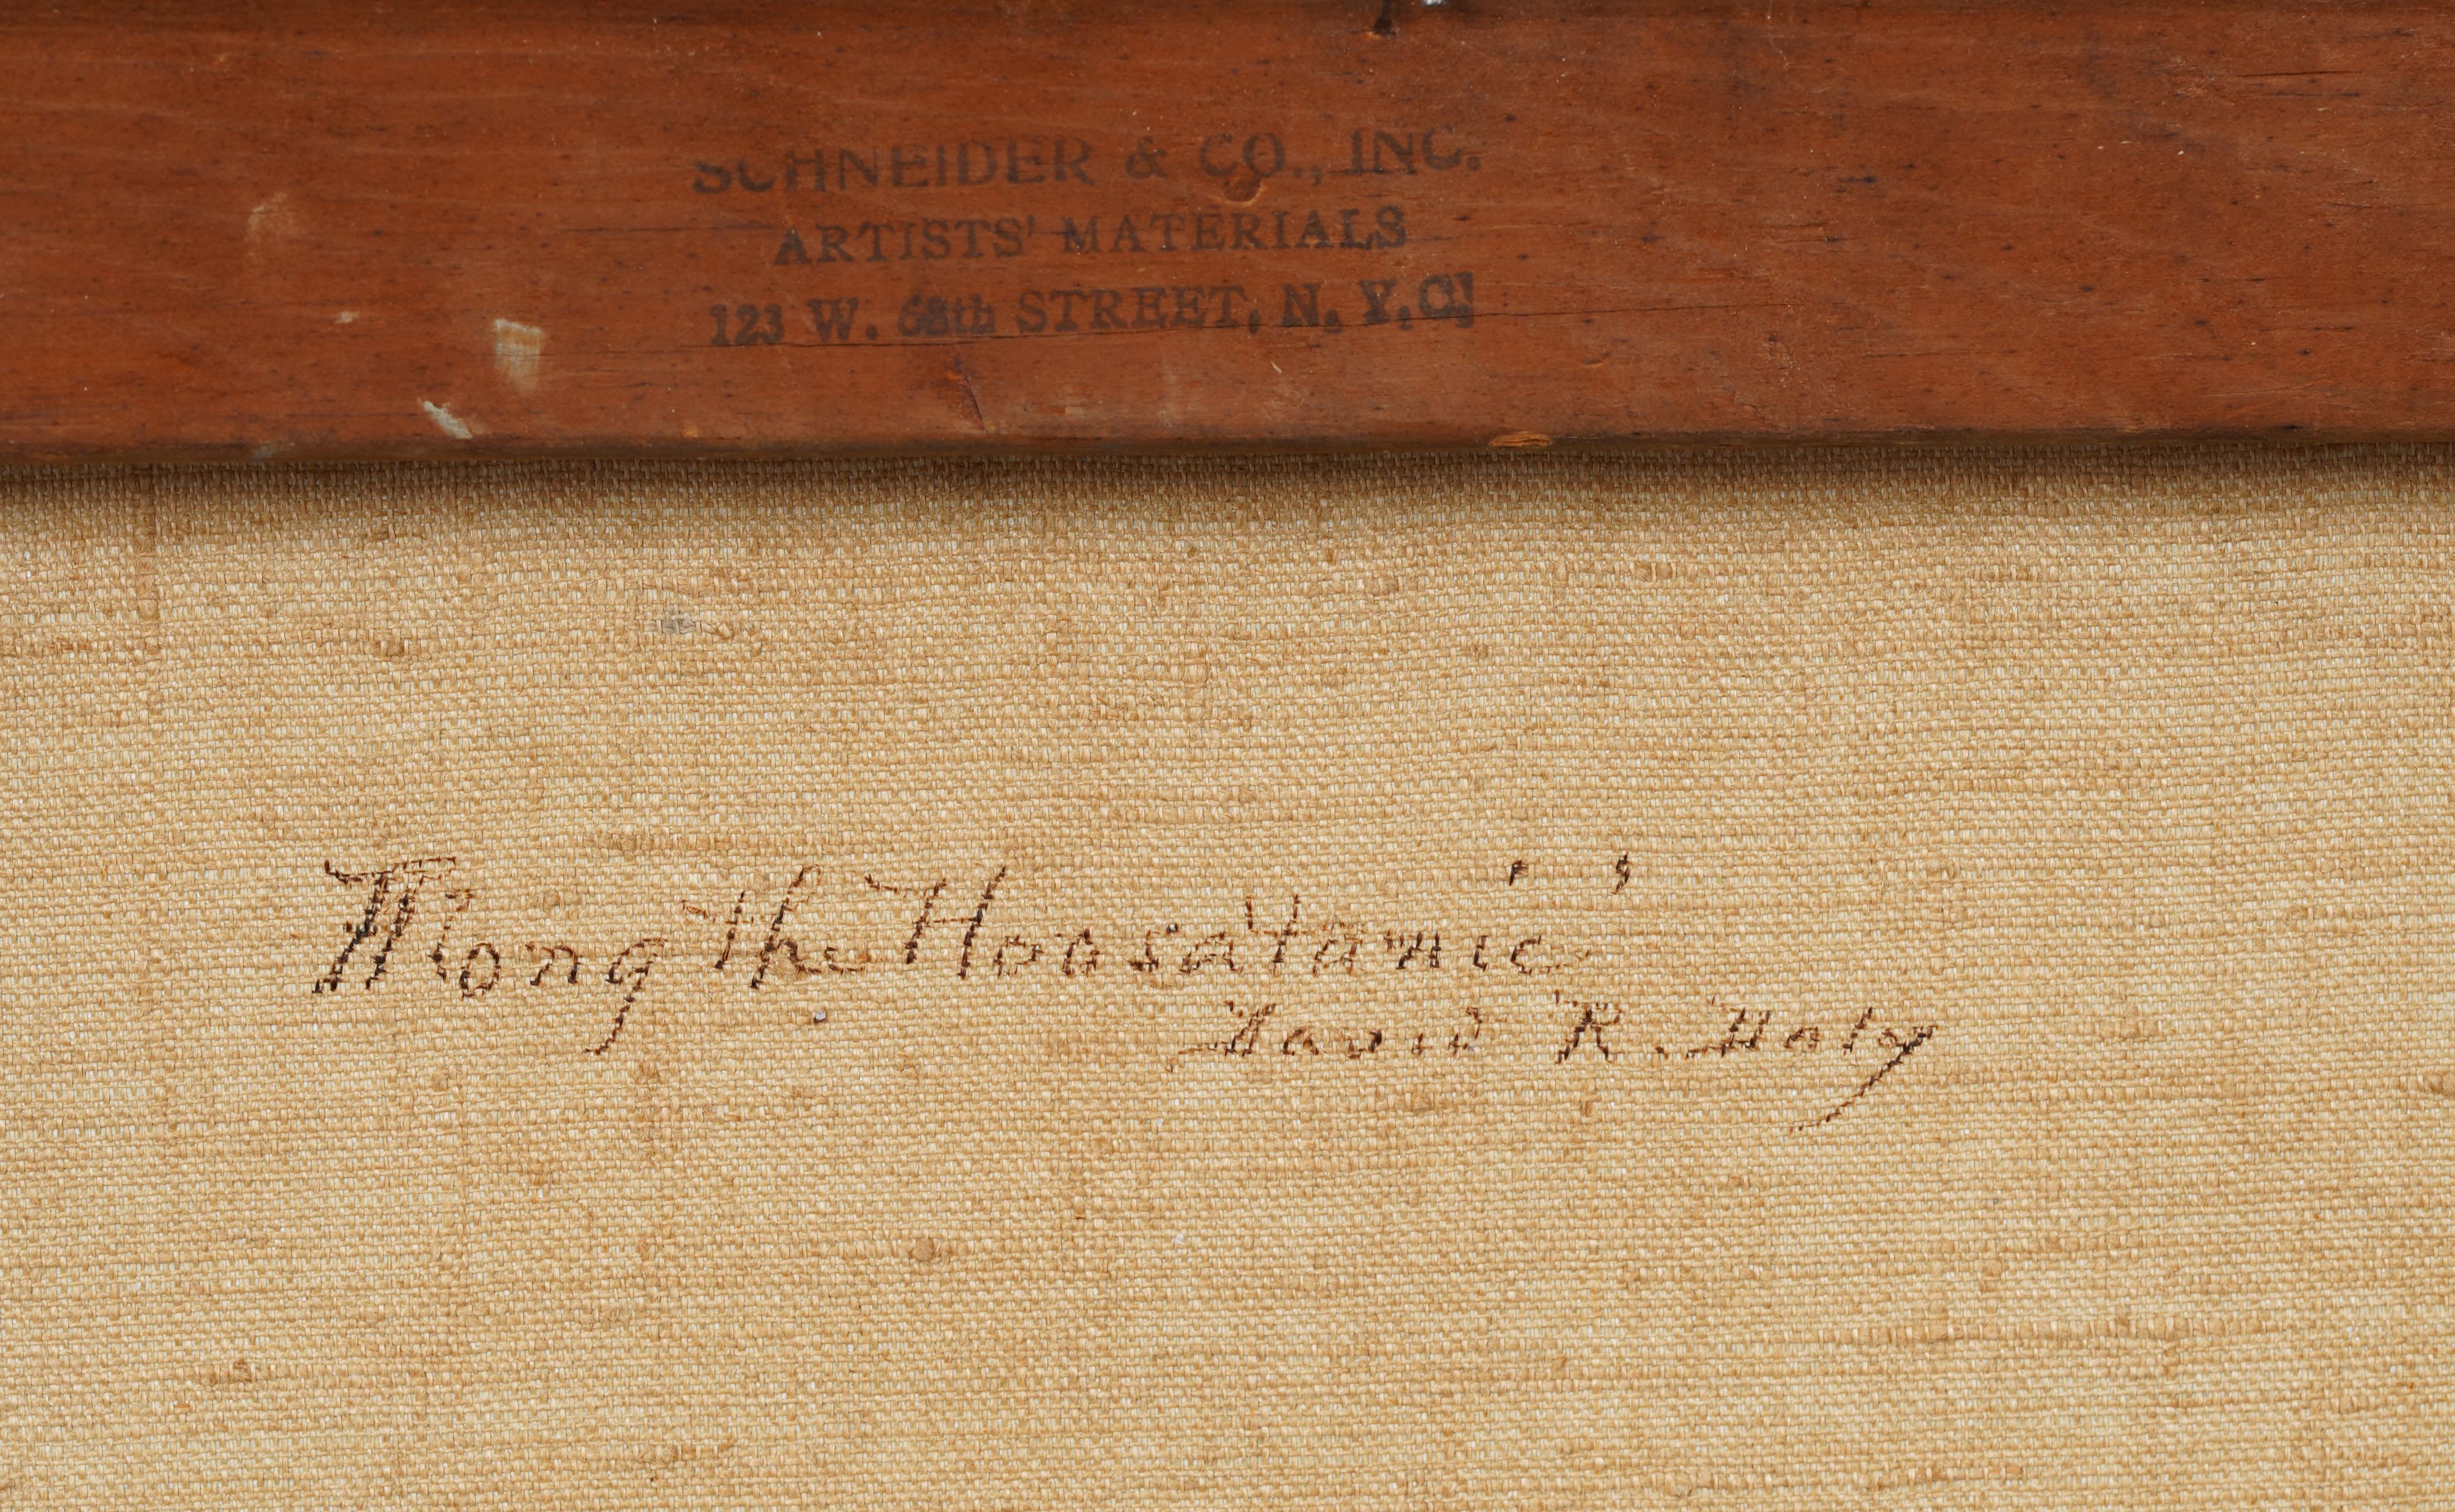 SCHNEIDER & CO., INC.
ARTISTS' MATERIALS
123 W. 68th STREET, N. Y. C.
Along the Housatanic"
David R. Daly